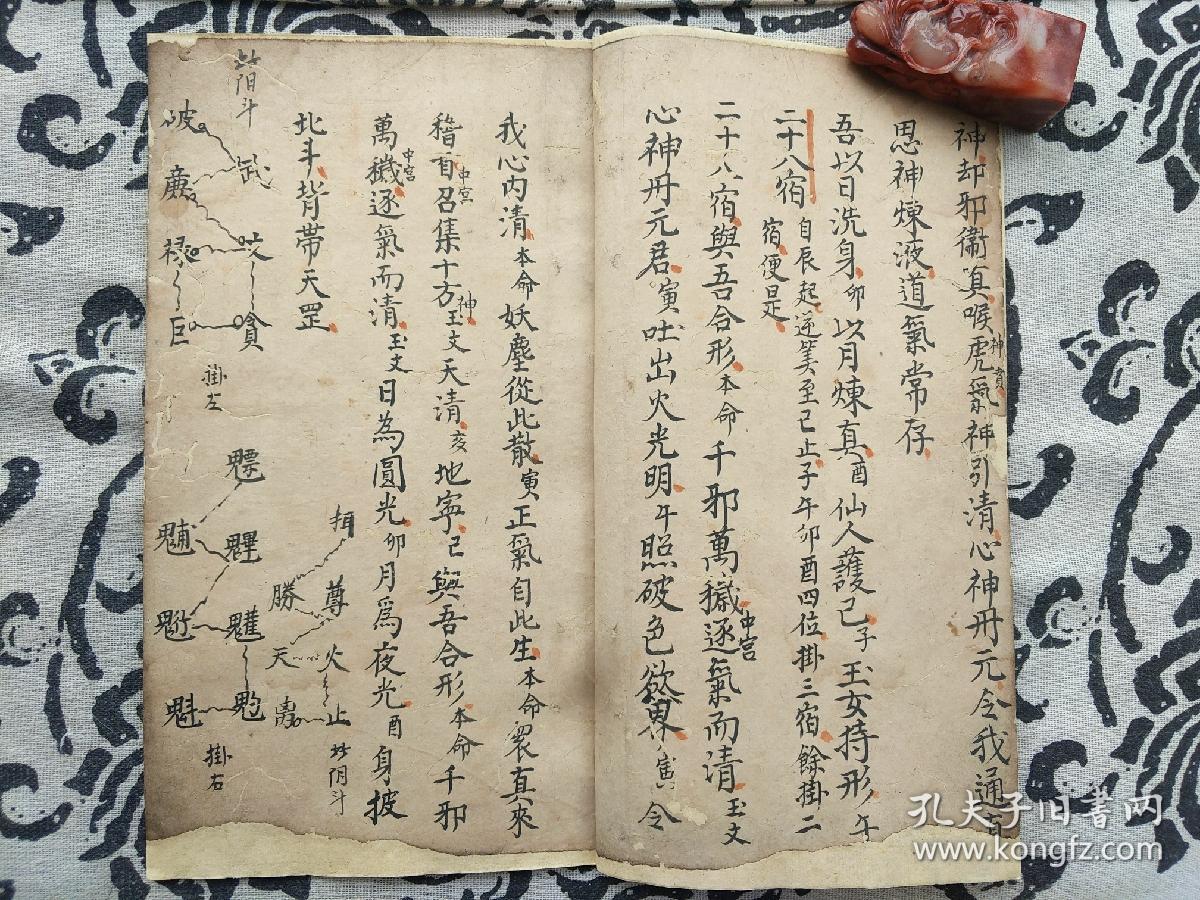 神却邪衞真喉虎氣神引清心神丹元令我通真
神賁
思神煉液道氣常存
吾以日洗身卯以月煉真酉仙人護己子玉女持形午
二十八宿
自辰起逆筭至巳止子午卯酉四位掛三宿餘掛二
宿便是
二十八宿與吾合形本命千邪萬穢逐氣而清玉文
中宮
心神丹元君寅吐出火光明午照破色慾界寅令
我心内清本命妖塵從此散寅正氣自此生本命衆真來
稽首召集十方玉文天清亥地寧已與吾合形本命千邪
中宮
神
萬穢逐氣而清玉文日為圓光卯月爲夜光酉身披
中宮
北斗背帶天罡
此陽斗
破
武
廉
禄
文
巨
貪
掛左
魓
魁
掛右
尊
勝
火
天
止
此阴斗
孔夫子旧書网
www.kongfz.com